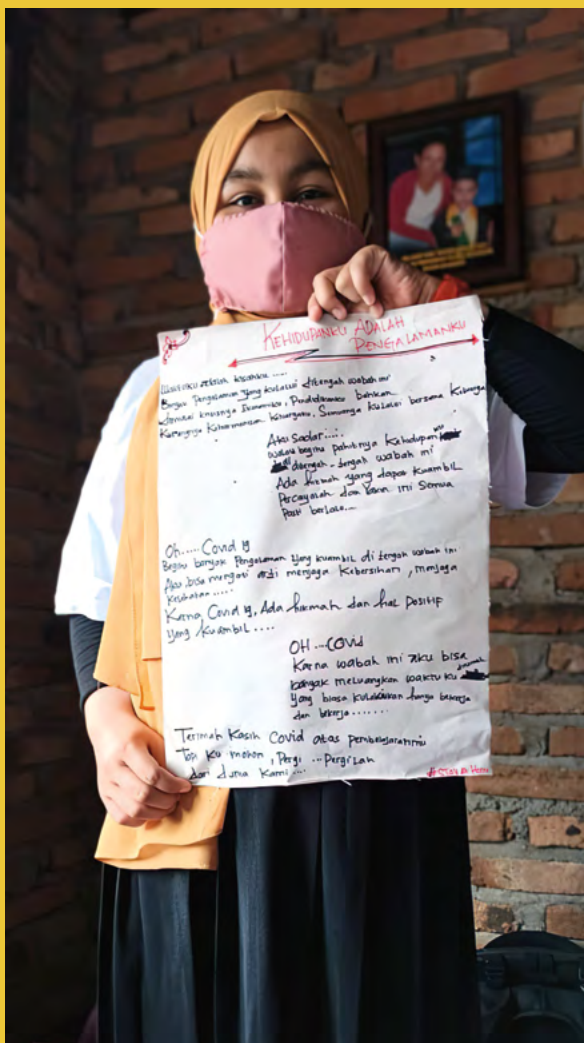 KEHIDUPANKU ADALAH
PENGALAMANKU
kisahku ....
Banyak Pengalaman yang kulalui ditengah wabah ini
krisisnya Ekonomiku, Pendidikanku bahkan
Kurangnya Keharmonisan Keluargaku, Semuanya kulalui bersama Keluarga
Aku Sadar.....
walau begitu pahitnya Kehidupan ku
ditengah-tengah wabah ini
Ada hikmah yang dapat kuambil
Percayalah dan Yakin ini Semua
Pasti berlalu...
Oh.....Covid 19
Begitu banyak Pengalaman yang kuambil di tengah wabah ini
Aku bisa arti menjaga Kebersihan, menjaga
Kesehatan .....
Karna Covid 19, Ada hikmah dan hal Positif
yang kuambil ....
OH ...COVID
Karna wabah ini aku bisa
banyak meluangkan waktu ku
yang biasa kulakukan hanya bekerja
dan bekerja .......
Terimah Kasih Covid atas pembelajaranmu
Tapi Ku mohon, Pergi ...Pergilah
dari dunia Kami ...